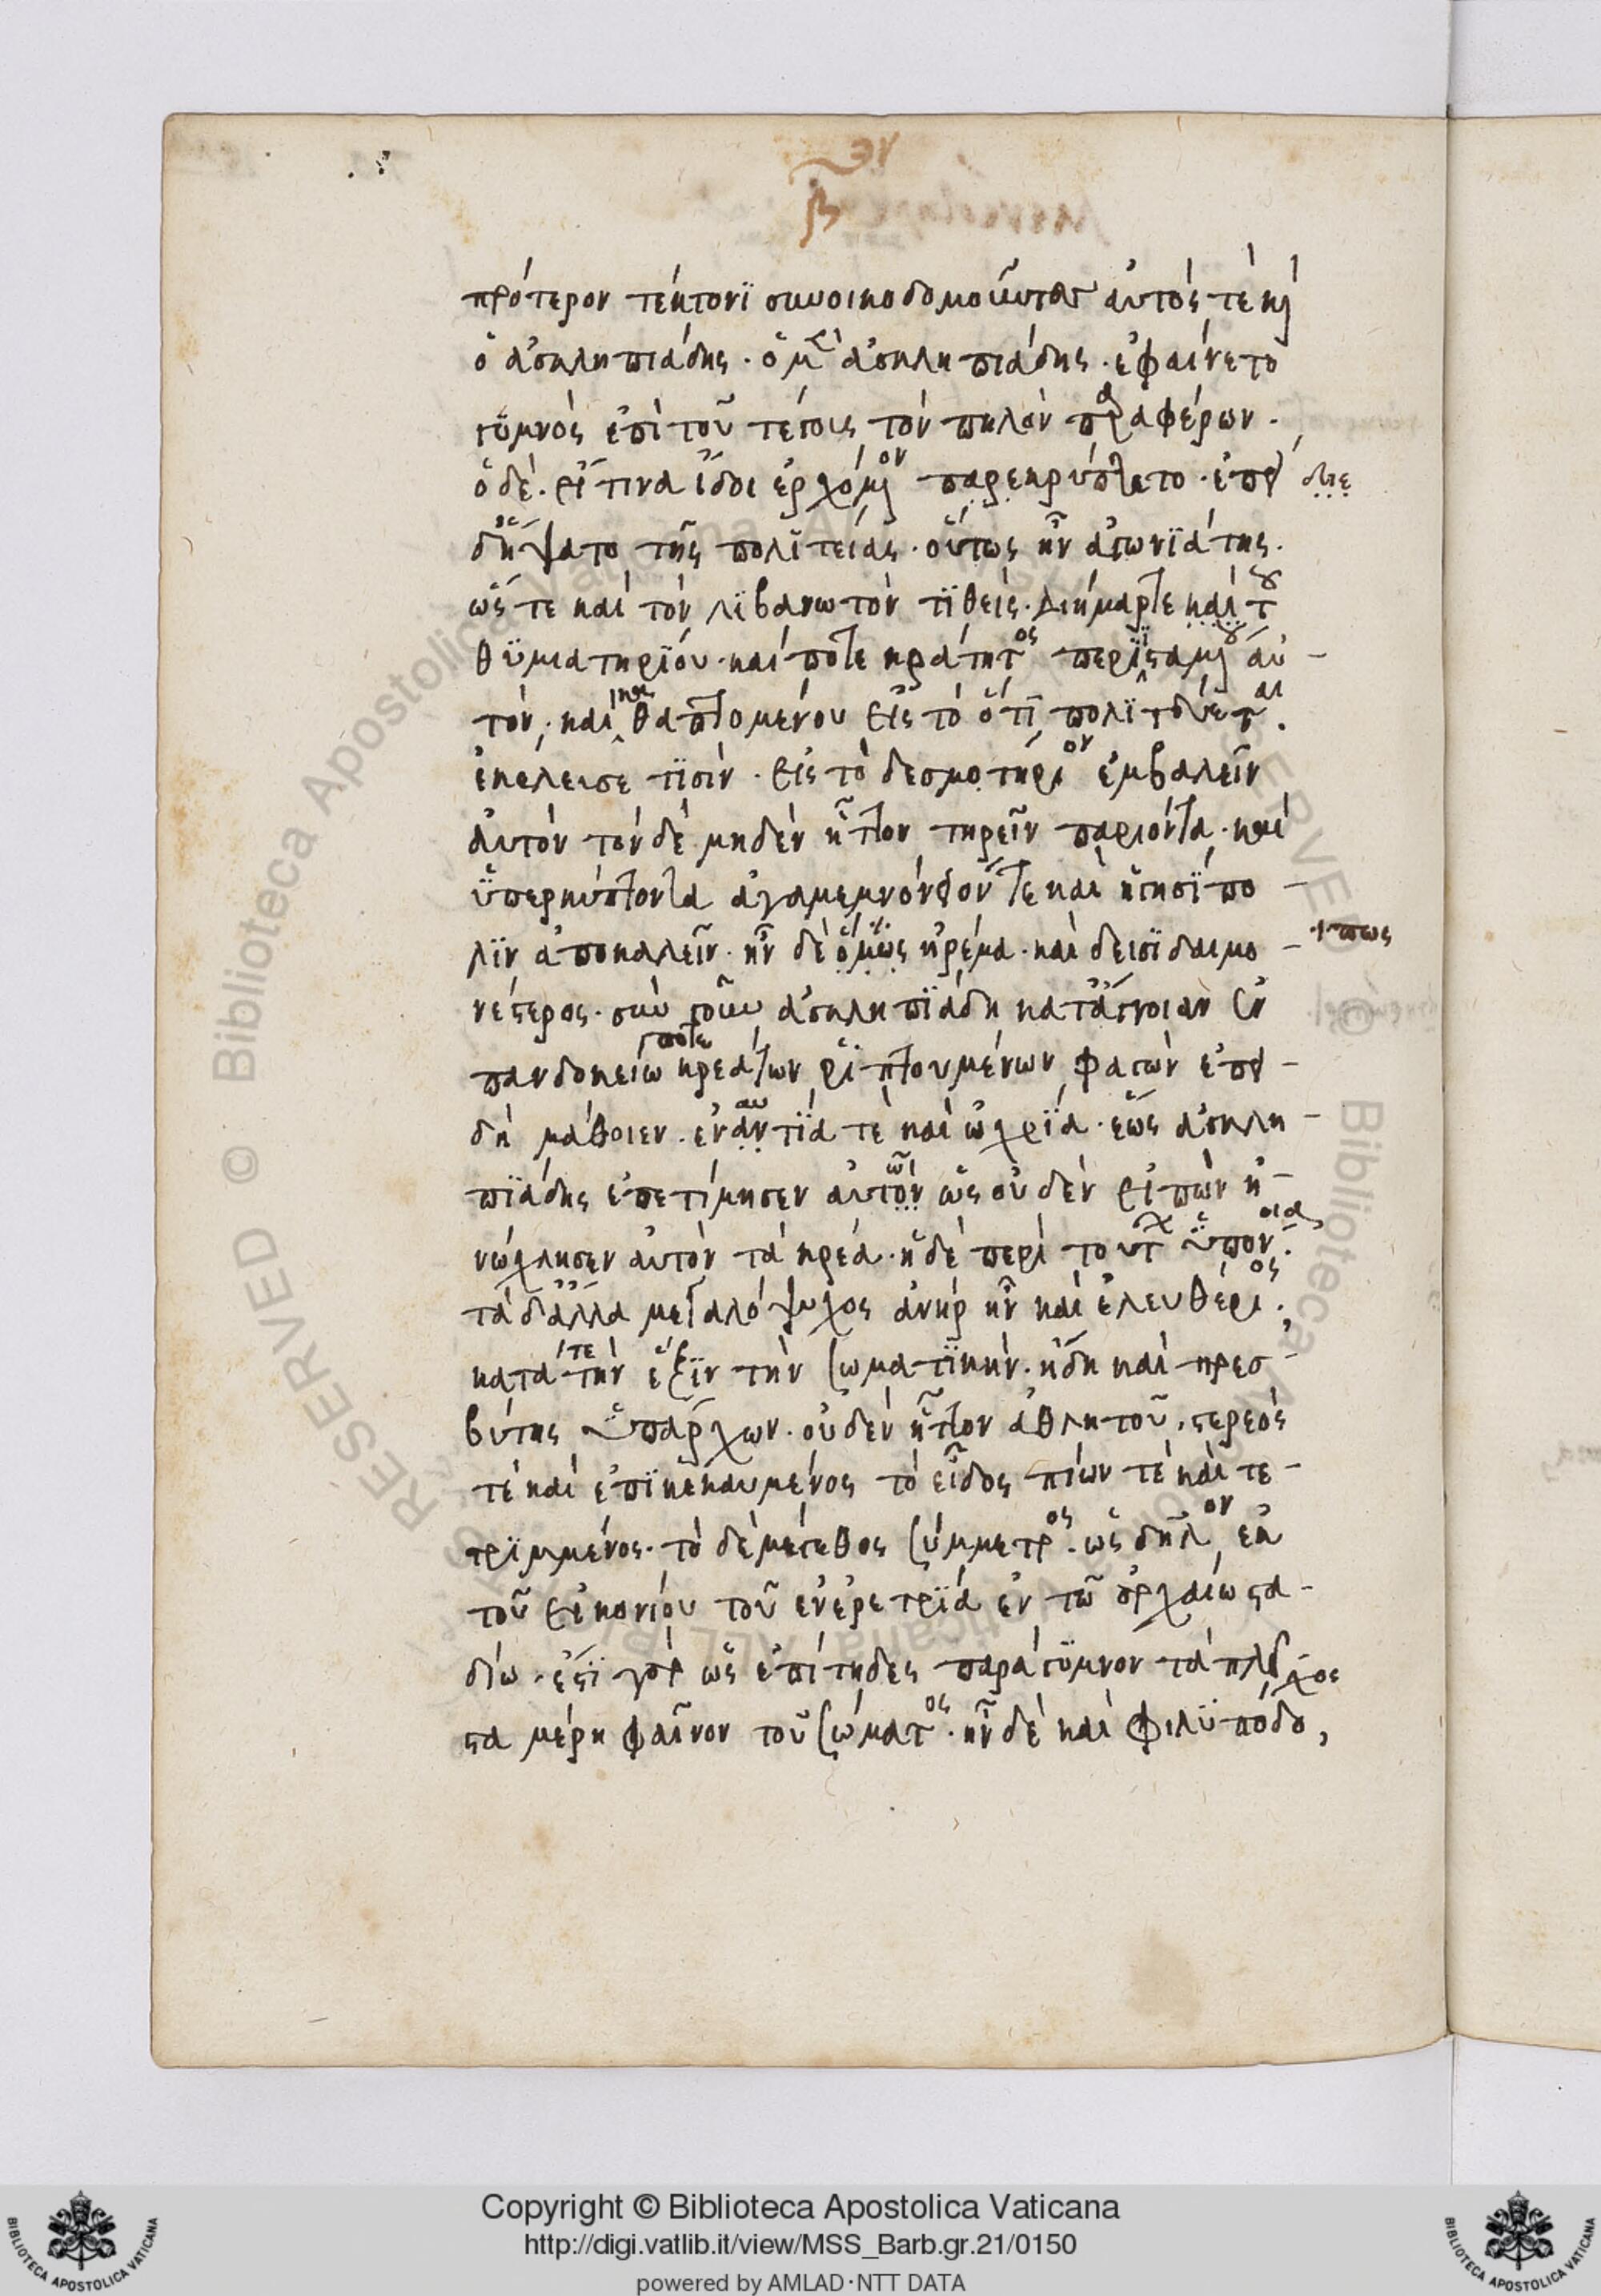 πρότερον τέκτονϊ συνοικοδομοῦντας αὐτός τὲ κ(αὶ)
ὁ ἀσκληπιάδης · ὁ μὲν ἀσκληπιάδης · ἐφαίνετο
γϋμνὸς ἐπὶ τοῦ τέγους τὸν πηλὸν παραφέρων ·
ὁ δὲ · εἴ τινα ἴδοι ἐρχόμενον παρεκρύπτετο · ἐπει
δὴ ἥψατο τῆς πολϊτείας · οὕτως ἦν ἀγωνϊάτης ·
ὥς τε καὶ τὸν λϊβανωτὸν τϊθεὶς · διήμαρτε καὶ τοῦ
θϋμιατηρϊου · καί ποτε κράτητος περιϊσταμένου αὐ-
τὸν, καὶ καθαπτομένου εἰς τὸ ὅτϊ πολϊτεύεται.
ἐκέλευσε τϊσὶν · εἰς τὸ δεσμοτήριον ἐμβαλεῖν
αὐτὸν τὸν δὲ μηδὲν ἧττον τηρεῖν παριόντα · καὶ
ϋπερκύπτοντα ἀγαμεμνόνειόν τε καὶ ἡγησίπο-
λϊν ἀποκαλεῖν · ἦν δὲ ὅμως ἠρέμα · καὶ δεισϊδαιμο- πως
νέστερος · σὺν γοῦν ἀσκληπϊάδη κατ' ἄγνοιαν ἐν
πανδοκείω ποτε κρεάτων ῥιπτουμένων φαγὼν ἐπει-
δὴ μάθοιεν · ἐναντϊά τὲ καὶ ὠχρϊά · ἕως ἀσκλη-
πϊάδης ἐπετίμησεν αὐτὸν ὡς οὐδὲν εἰπὼν ἠ-
νώχλησεν αὐτὸν τὰ κρέα · ἡ δὲ περὶ τούτων ϋπόνοια.
τὰ δ' ἄλλα μεγαλόψυχος ἀνὴρ ἦν καὶ ἐλευθέριος,
κατά τε τὴν ἕξϊν τὴν σωματϊκὴν · ἤδη καὶ πρεσ-
βύτης ϋπάρχων · οὐδὲν ἧττον ἀθλητοῦ · στερεός
τὲ καὶ ἐπϊκεκαυμένος τὸ εἶδος πίων τὲ καὶ τε-
τρϊμμένος · τὸ δὲ μέγεθος σύμμετρος · ὡς δῆλον, ἐκ
τοῦ εἰκονίου τοῦ ἐν ἐρετρϊά ἐν τῶ ἀρχαίω στα-
δίω · ἔστϊ γὰρ ὡς ἐπίτηδες παράγϋμνον τὰ πλεῖ
στα μέρη φαῖνον τοῦ σώματος · ἦν δὲ καὶ φιλϋπόδο,
χος
Copyright © Biblioteca Apostolica Vaticana
http://digi.vatlib.it/view/MSS_Barb.gr.21/0150
powered by AMLAD·NTT DATA